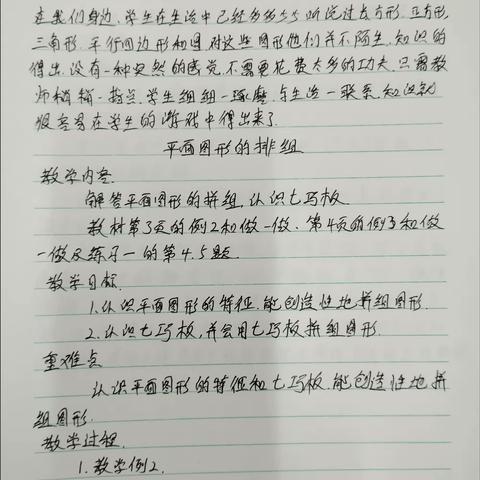 在我们身边,学生在生活中已经多多少少听说过长方形.正方形,
三角形.平行四边形和圆.对这些图形他们并不陌生.知识的
得出.没有一种突然的感觉.不需要花费太多的功夫.只需教
师稍稍一指点.学生细细一琢磨.与生活一联系.知识就
很容易在学生的游戏中得出来了.
平面图形的拼组
教学内容
解答平面图形的拼组,认识七巧板
教材第3页的例2和做一做、第4页的例3和做
一做及练习一的第4.5题.
教学目标.
1.认识平面图形的特征.能创造性地拼组图形.
2.认识七巧板,并会用七巧板拼组图形.
重难点
认识平面图形的特征和七巧板.能创造性地拼
组图形.
教学过程.
1.教学例2.